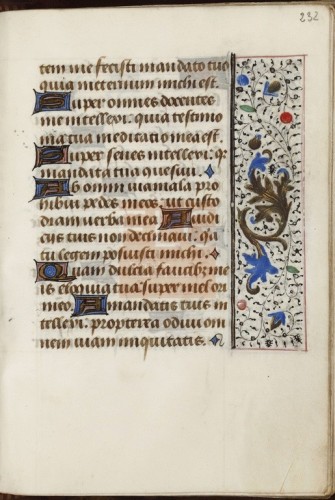 232
tem me fecisti mandato tuo
quia in eternum michi est.
Super omnes docentes
me intellexi. quia testimo
nia tua meditatio mea est.
Super senes intellexi. qr
mandata tua quesiui.
Ab omni uia mala pro
hibui pedes meos. ut custo
diam verba mea A iudi
cijs tuis non declinaui. qa
tu legem posuisti michi.
Quam dulcia faucib; me
is eloquia tua. super mel ori
meo. A mandatis tuis in
tellexi. propterea odiui om
nem uiam iniquitatis.